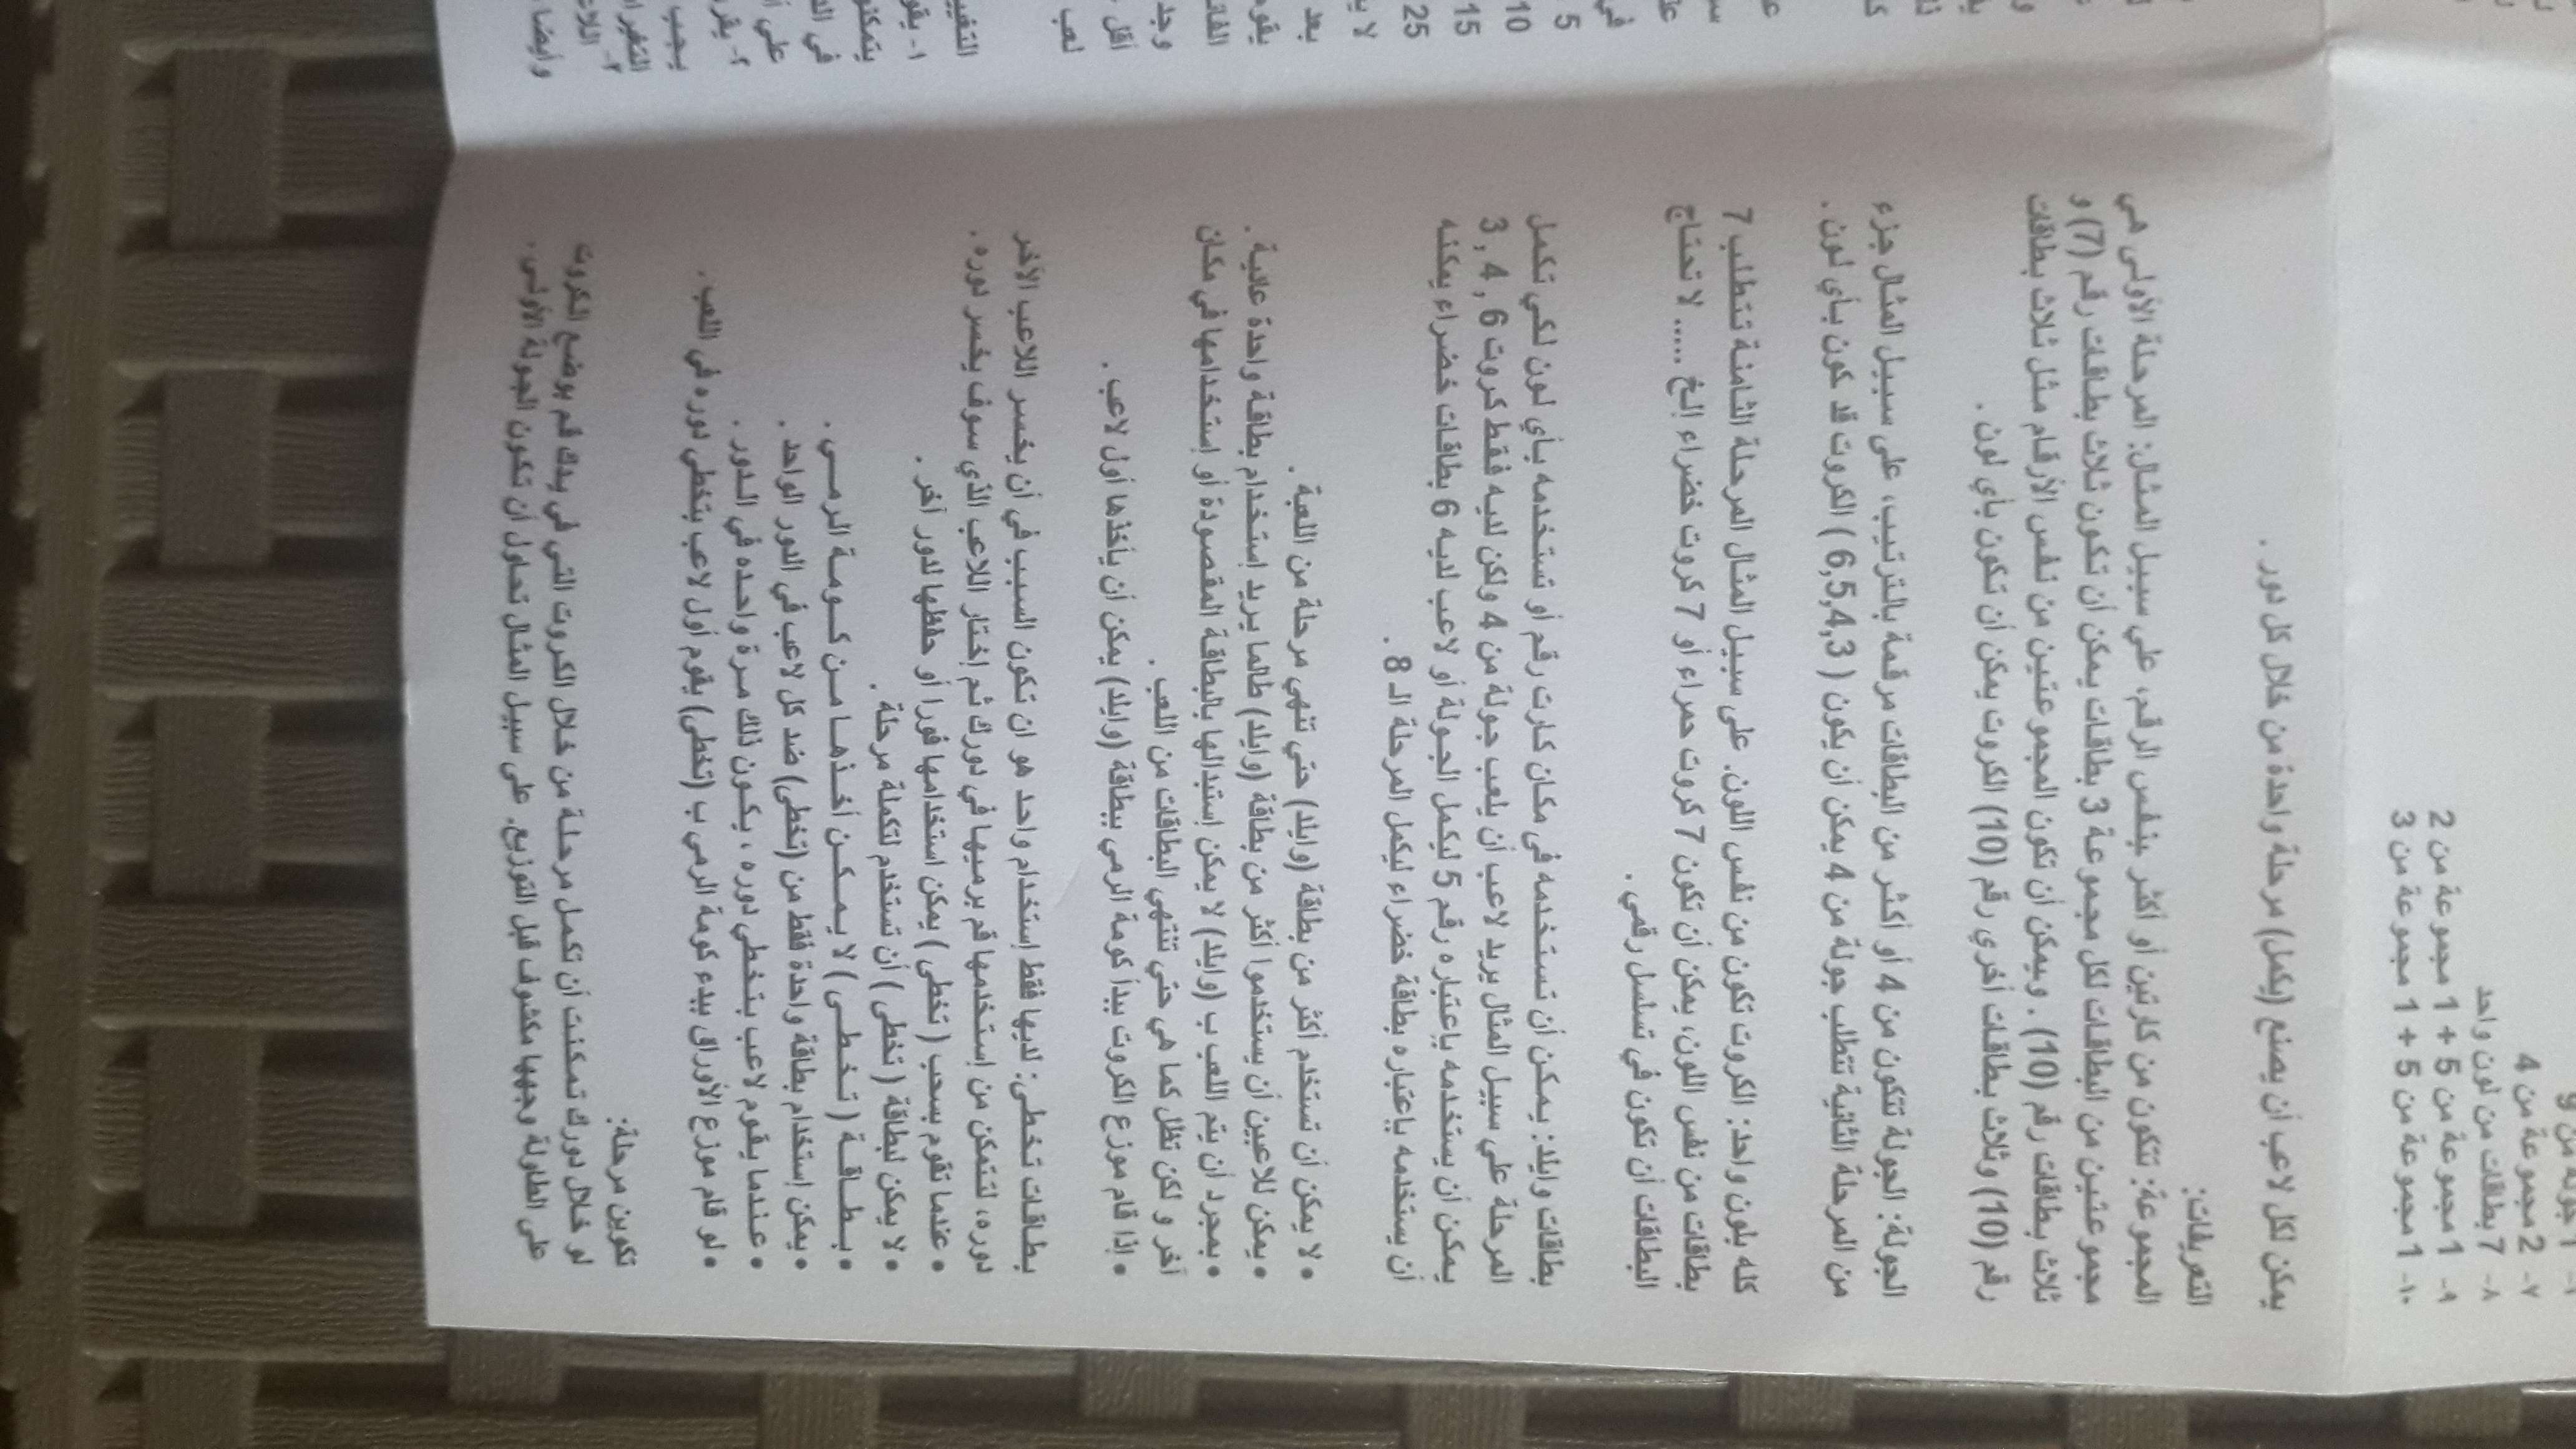 ٧- 2 مجموعة من 4
٨- 7 بطاقات من لون واحد
٩- 1 مجموعة من 5 + 1 مجموعة من 2
١٠- 1 مجموعة من 5 + 1 مجموعة من 3
يمكن لكل لاعب أن يصنع (يكمل) مرحلة واحدة من خلال كل دور .
التعريفات:
المجموعة: تتكون من كارتين أو أكثر بنفس الرقم، علي سبيل المثال: المرحلة الأولى هي
مجموعتين من البطاقات لكل مجموعة 3 بطاقات يمكن أن تكون ثلاث بطاقات رقم (7) و
ثلاث بطاقات رقم (10) . ويمكن أن تكون المجموعتين من نفس الأرقام مثل ثلاث بطاقات
رقم (10) وثلاث بطاقات أخري رقم (10) الكروت يمكن أن تكون بأي لون .
الجولة: الجولة تتكون من 4 أو أكثر من البطاقات مرقمة بالترتيب، على سبيل المثال جزء
من المرحلة الثانية تتطلب جولة من 4 يمكن أن يكون ( 6,5,4,3 ) الكروت قد تكون بأي لون .
كله بلون واحد: الكروت تكون من نفس اللون. على سبيل المثال المرحلة الثامنة تتطلب 7
بطاقات من نفس اللون، يمكن أن تكون 7 كروت حمراء أو 7 كروت خضراء إلخ ..... لا تحتاج
البطاقات أن تكون في تسلسل رقمي .
بطاقات وايلد: يمكن أن تستخدمه في مكان كارت رقم أو تستخدمه بأي لون لكي تكمل
المرحلة علي سبيل المثال يريد لاعب أن يلعب جولة من 4 ولكن لديه فقط كروت 6 , 4 , 3
يمكن أن يستخدمه بإعتباره رقم 5 ليكمل الجولة أو لاعب لديه 6 بطاقات خضراء يمكنه
أن يستخدمه باعتباره بطاقة خضراء ليكمل المرحلة الـ 8 .
• لا يمكن أن تستخدم أكثر من بطاقة (وايلد) حتي تنهي مرحلة من اللعبة .
• يمكن للاعبين أن يستخدموا أكثر من بطاقة (وايلد) طالما يريد إستخدام بطاقة واحدة عادية .
• بمجرد أن يتم اللعب ب (وايلد) لا يمكن إستبدالها بالبطاقة المقصودة أو إستخدامها في مكان
آخر و لكن تظل كما هي حتي تنتهي البطاقات من اللعب .
• إذا قام موزع الكروت يبدأ كومة الرمي ببطاقة (وايلد) يمكن أن يأخذها أول لاعب .
بطاقات تخطى: لديها فقط إستخدام واحد هو ان تكون السبب في أن يخسر اللاعب الآخر
دوره، لتتمكن من إستخدمها قم برميها في دورك ثم إختار اللاعب الذي سوف يخسر دوره .
• عندما تقوم بسحب ( تخطى ) يمكن استخدامها فورا أو حفظها لدور آخر .
• لا يمكن لبطاقة ( تخطى ) أن تستخدم لتكملة مرحلة .
• بطاقة ( تخطى ) لا يمكن أخذها من كومة الرمي .
• يمكن إستخدام بطاقة واحدة فقط من (تخطى) ضد كل لاعب في الدور الواحد .
• عندما يقوم لاعب بتخطي دوره ، يكون ذلك مرة واحده في الدور .
• لو قام موزع الأوراق ببدء كومة الرمي ب (تخطى) يقوم أول لاعب بتخطي دوره في اللعب .
تكوين مرحلة:
لو خلال دورك تمكنت أن تكمل مرحلة من خلال الكروت التي في يدك قم بوضع الكروت
على الطاولة وجهها مكشوف قبل التوزيع. على سبيل المثال تحاول أن تكون الجولة الأولى .
5
10
15
25
لا
بعد
يقوم
وجد
أقل
لعب
١- يقو
يتمكنو
في
على
٢- يقر
يجب
وأيضا